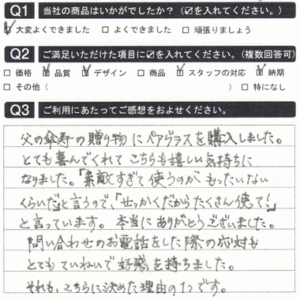 Q1 当社の商品はいかがでしたか？（☑を入れてください。）
☑大変よくできました □よくできました □頑張りましょう
Q2 ご満足いただけた項目に☑を入れてください。（複数回答可）
□価格 ☑品質 ☑デザイン □商品 ☑スタッフの対応 ☑納期
□その他（ ） □特になし
Q3 ご利用にあたってご感想をおよせください。
父の傘寿の贈り物にペアグラスを購入しました。
とても喜んでくれてこちらも嬉しい気持ちに
なりました。「素敵すぎて使うのが もったいない
くらいだ」と言うので、「せっかくだからたくさん使って！」
と言っています。本当にありがとうございました。
問い合わせのお電話をした際の応対も
とてもていねいで好感を持ちました。
それも、こちらに決めた理由の1つです。